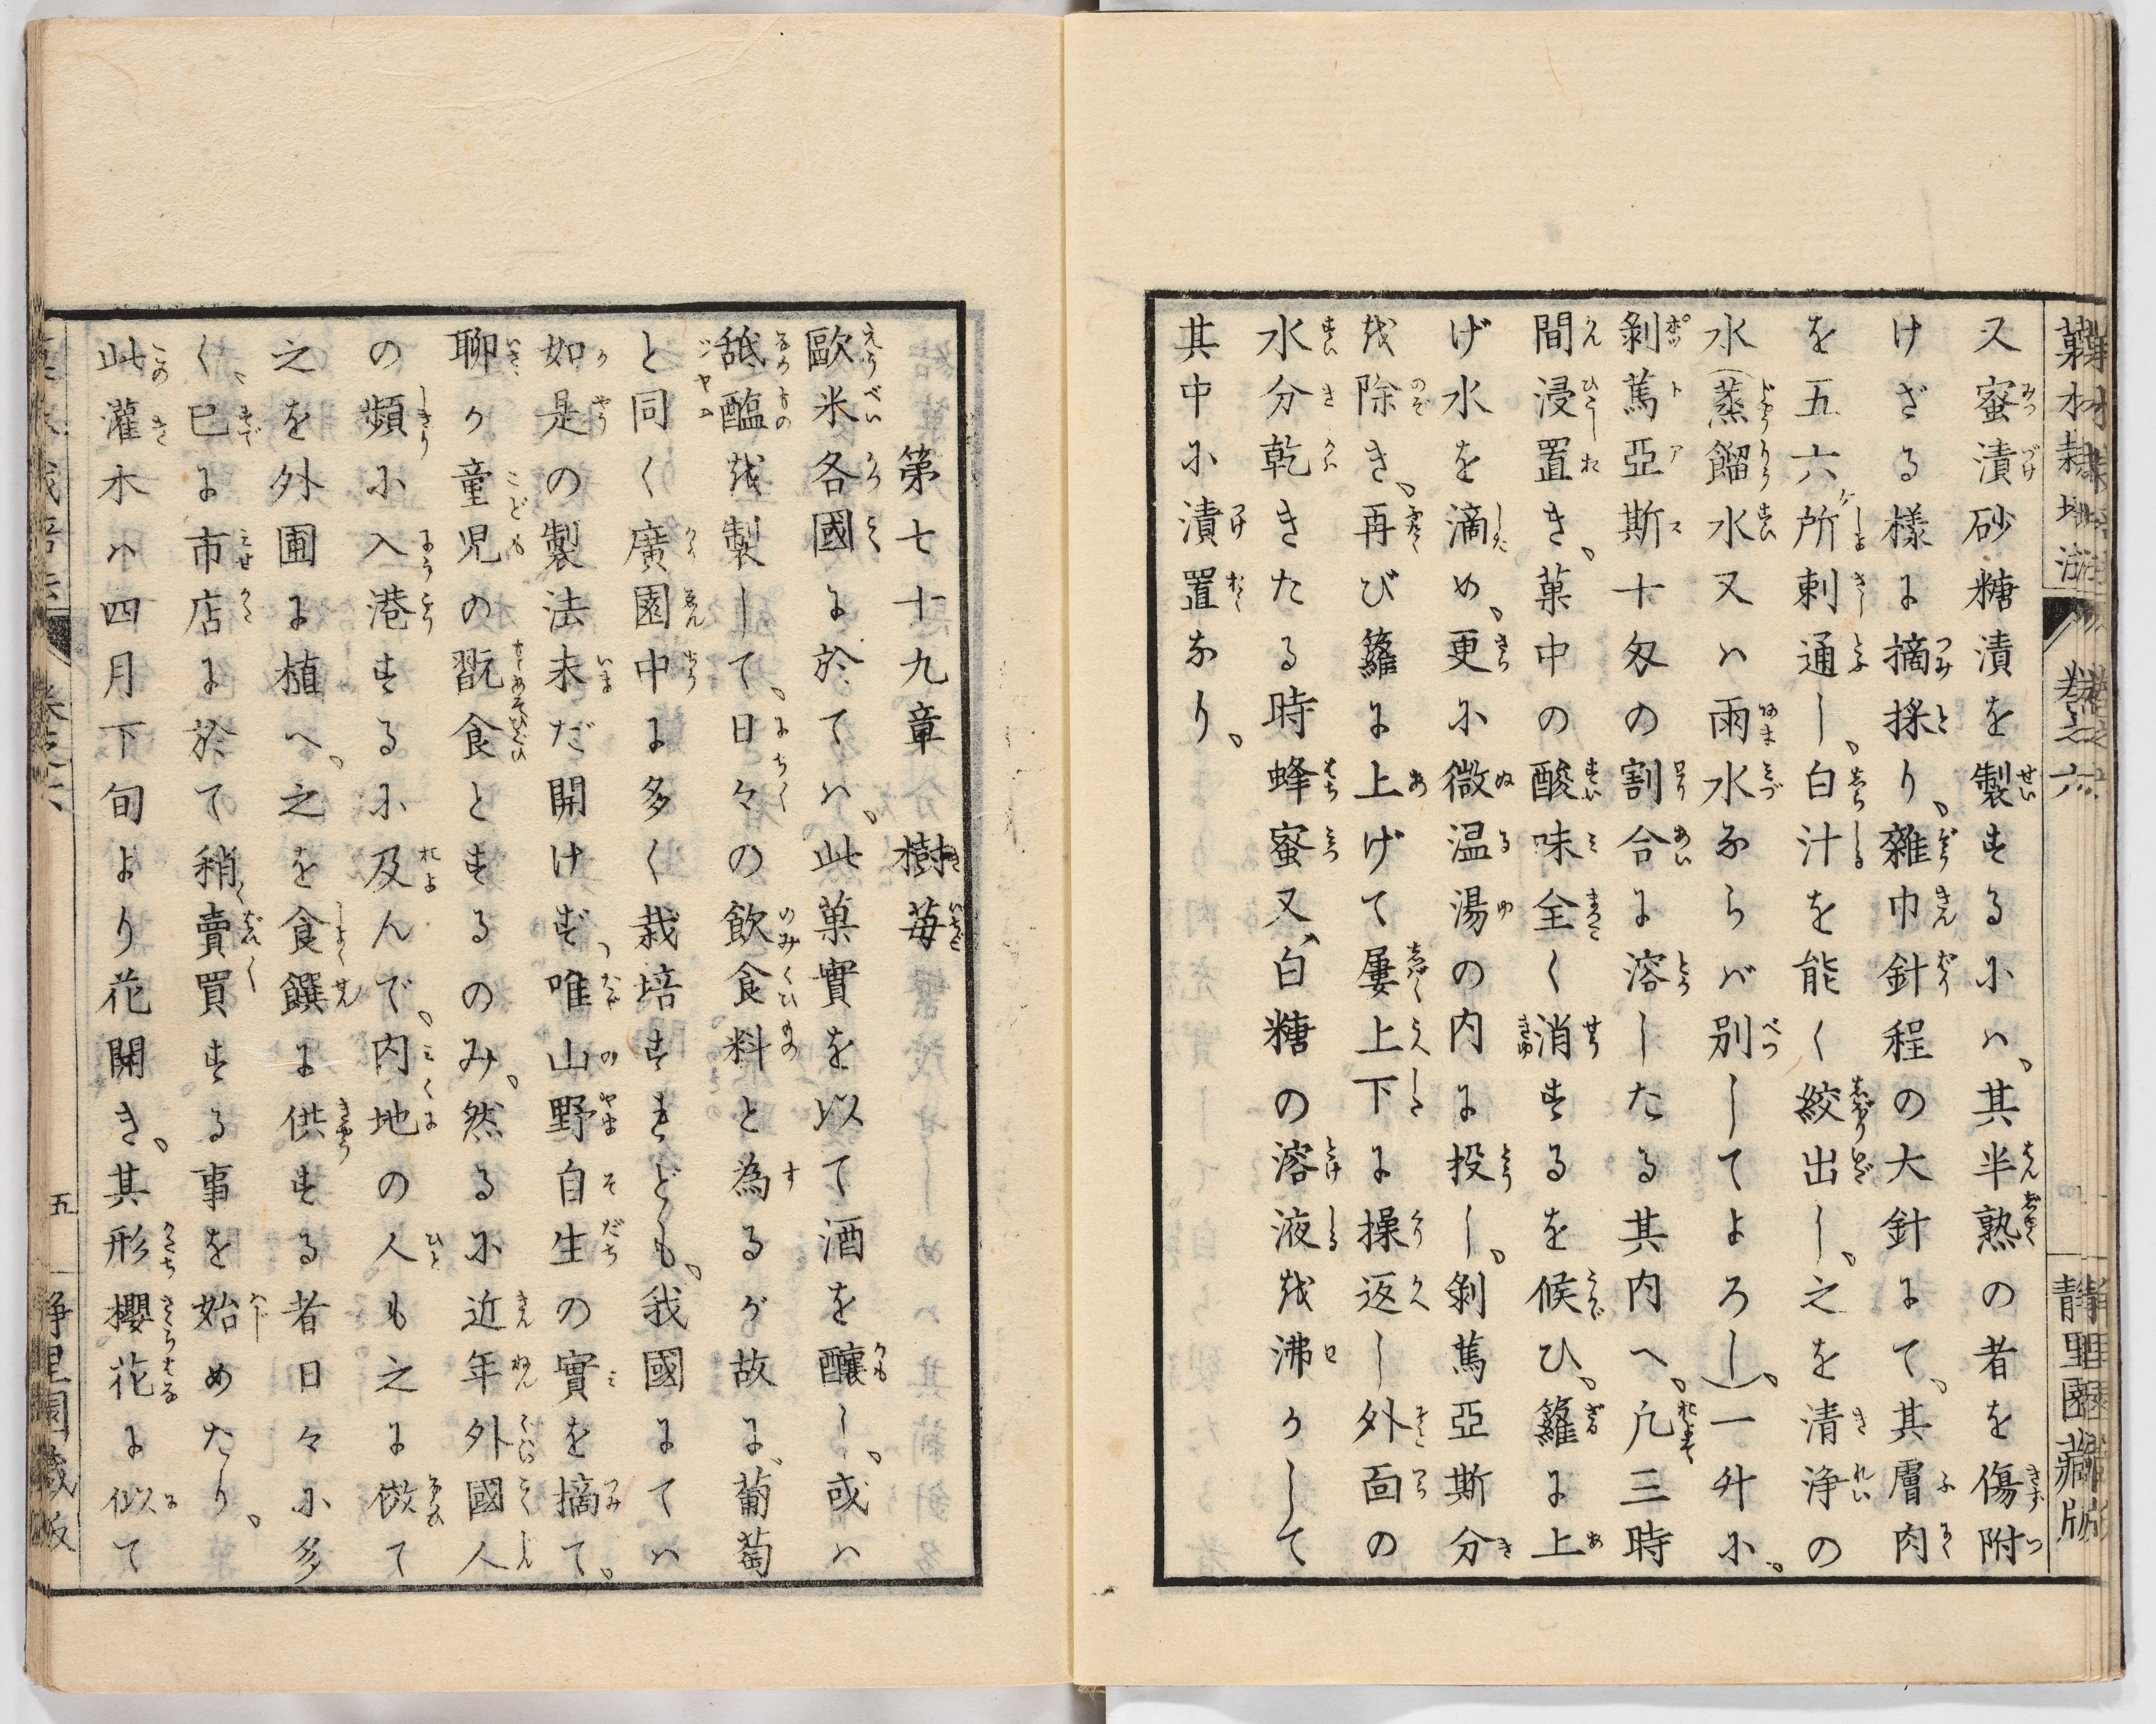 又蜜漬砂糖漬を製するにハ、其半熟の者を傷附
けざる様に摘採り、雜巾針程の大針にて、其膚肉
を五六ケ所刺通し、白汁を能く絞出し、之を清浄の
水(蒸餾水又ハ雨水ならバ別してよろし)、一升に、
剝篤亞斯十匁の割合に溶したる其内へ、凡三時
間浸置き、菓中の酸味全く消するを候ひ、籮に上
げ水を滴め、更に微温湯の内に投し、剝篤亞斯分
を除き、再び籮に上げて屢上下に操返し外面の
水分乾きたる時蜂蜜又、白糖の溶液を沸かして
其中に漬置なり、
第七十九章　樹苺
歐米各國に於てハ、此菓實を以て酒を釀し、或ハ
舐醢を製して、日々の飲食料と為るが故に、葡萄
と同く廣園中に多く栽培すれども、我國にてハ
如是の製法未だ開けず、唯山野自生の實を摘て、
聊か童児の翫食とするのみ、然るに近年外國人
の頻に入港するに及んで、内地の人も之に傚て
之を外圃に植へ、之を食饌に供する者日々に多
く、已に市店に於て稍賣買する事を始めたり、
此灌木ハ四月下旬より花開き、其形櫻花に似て
卷之六
靜里園藏版
五